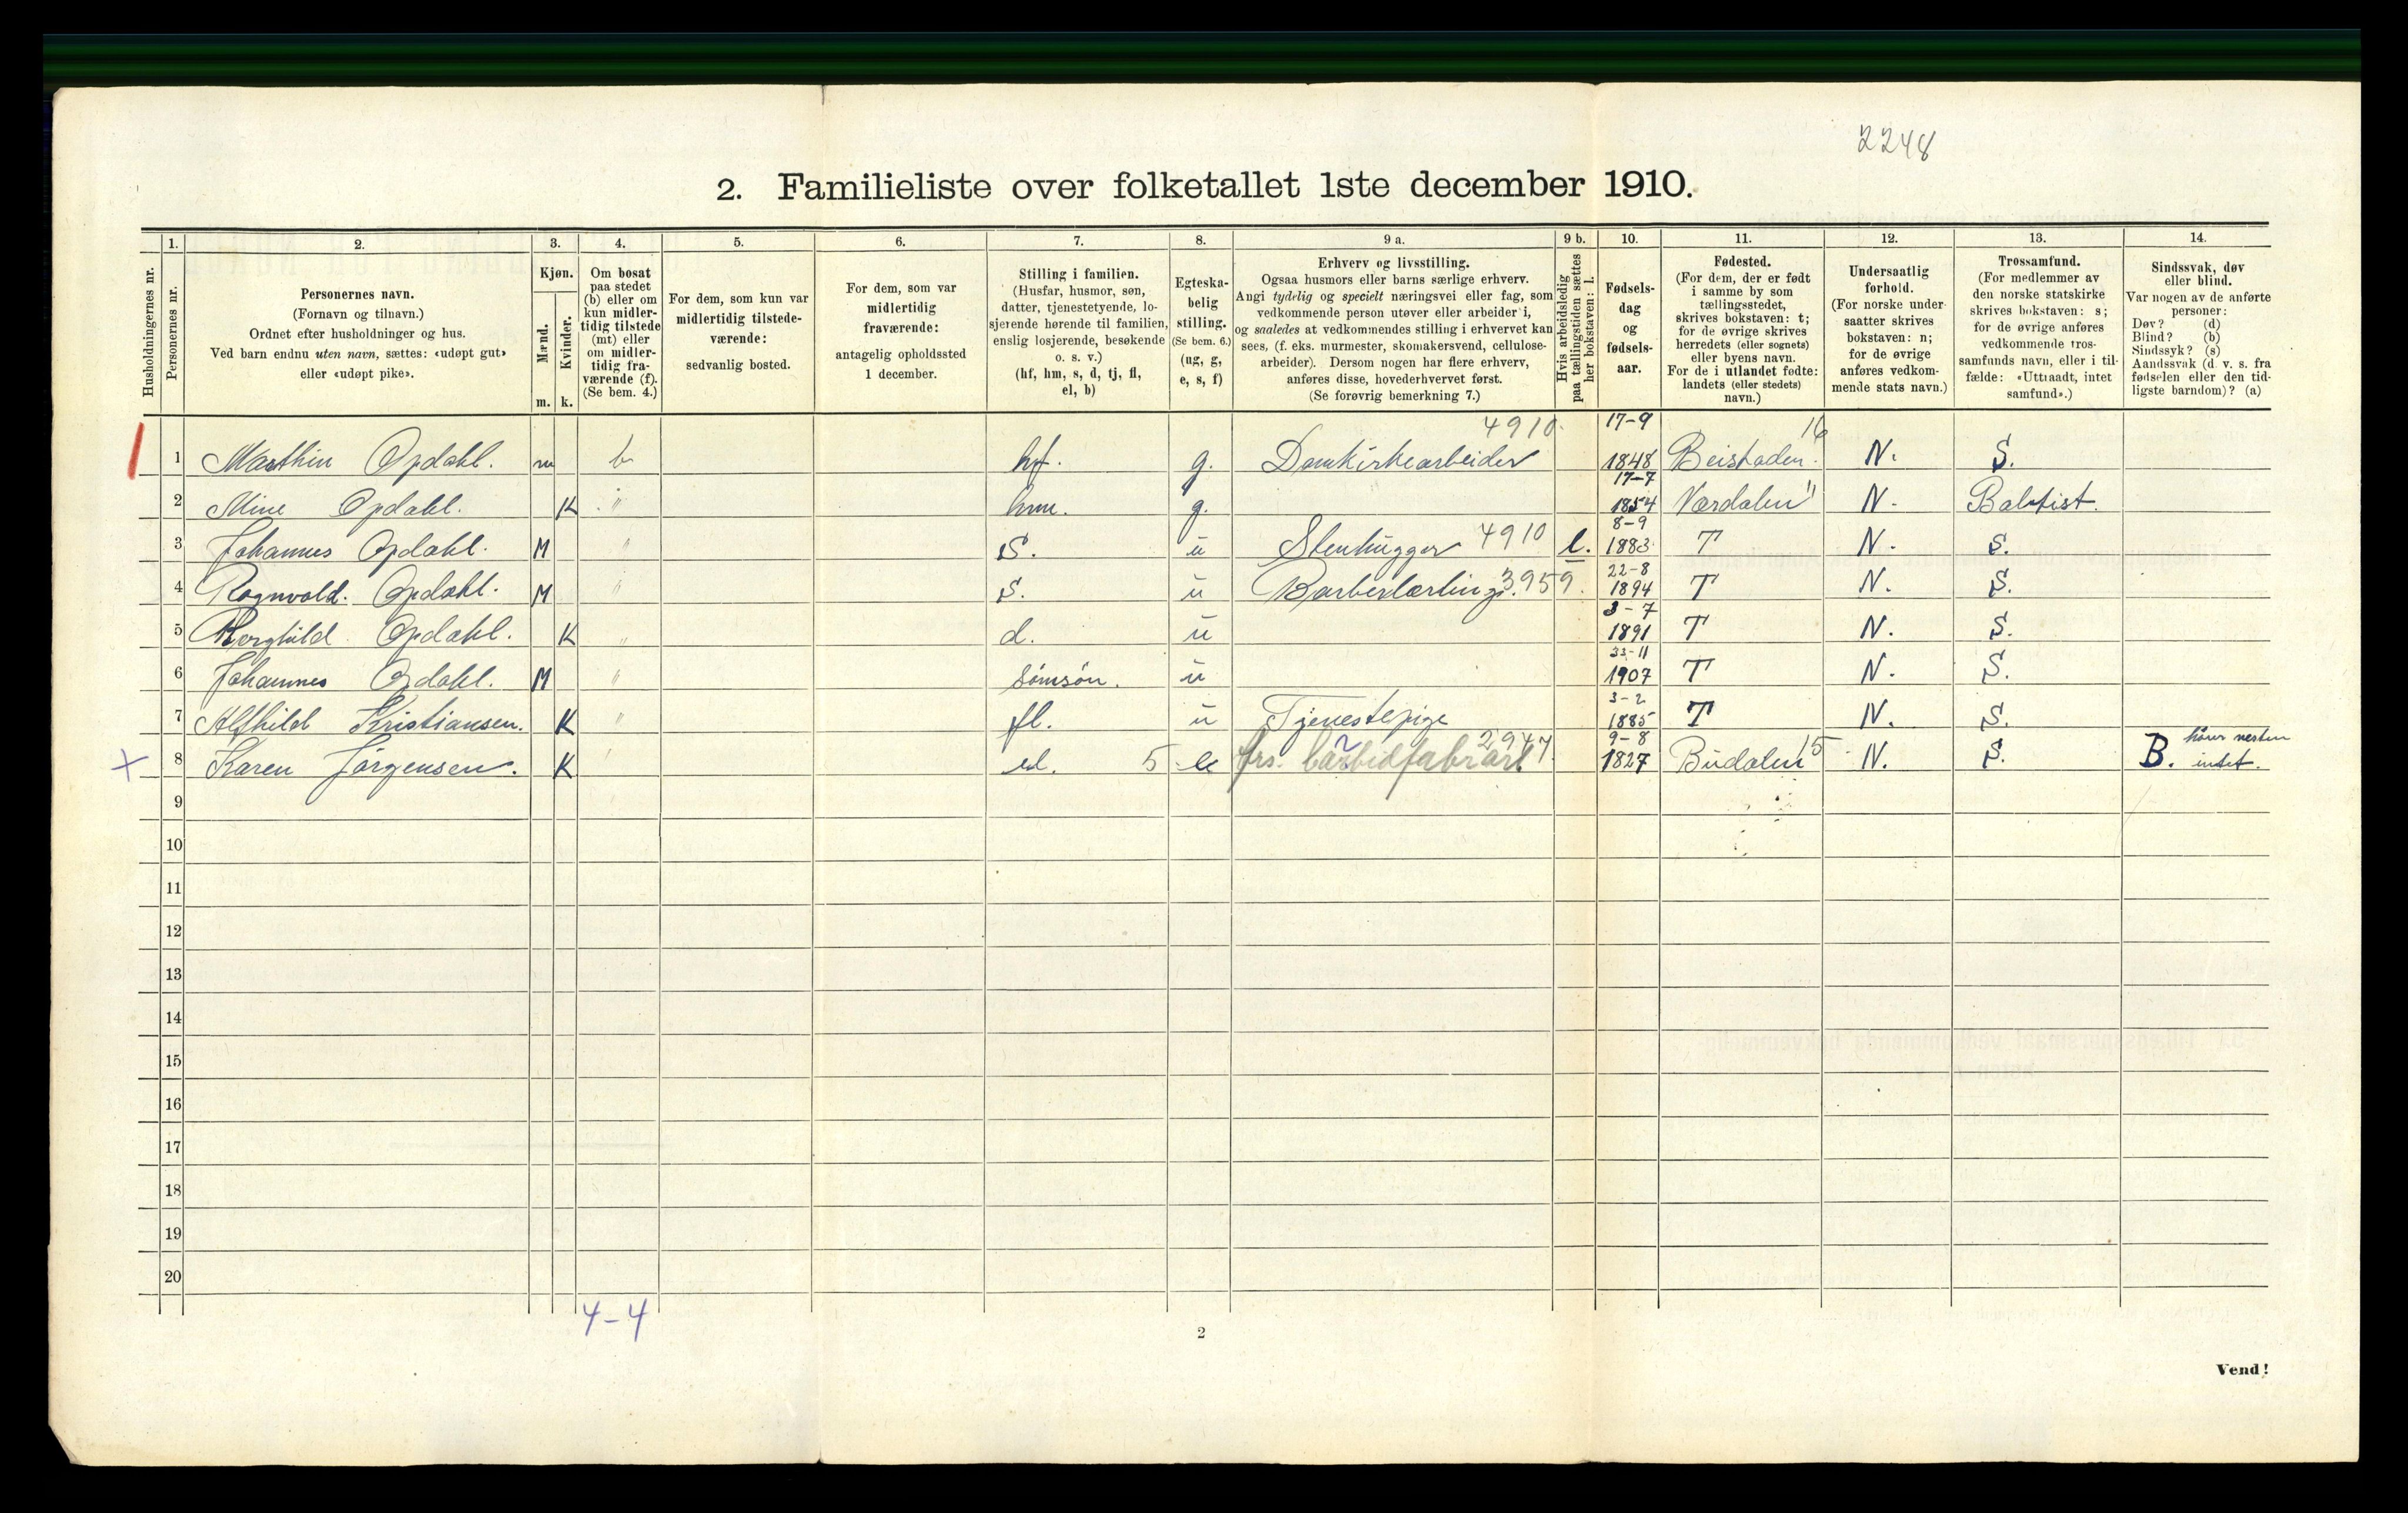 2248
2. Familieliste over folketallet 1ste december 1910.
Husholdningernes nr.
1.
Personernes nr.
2.
Personernes navn.
(Fornavn og tilnavn.)
Ordnet efter husholdninger og hus.
Ved barn endnu uten navn, sættes: «udøpt gut»
eller «udøpt pike».
3.
Kjøn.
Mænd.
Kvinder.
m. k.
4.
Om bosat
paa stedet
(b) eller om
kun midler-
tidig tilstede
(mt) eller
om midler-
tidig fra-
værende (f).
(Se bem. 4.)
5.
For dem, som kun var
midlertidig tilstede-
værende:
sedvanlig bosted.
6.
For dem, som var
midlertidig
fraværende:
antagelig opholdssted
1 december.
7.
Stilling i familien.
(Husfar, husmor, søn,
datter, tjenestetyende, lo-
sjerende hørende til familien,
enslig losjerende, besøkende
o. s. v.)
(hf, hm, s, d, tj, fl,
el, b)
8.
Egteska-
belig
stilling.
(Se bem. 6.)
(ug, g,
e, s, f)
9 a.
Erhverv og livsstilling.
Ogsaa husmors eller barns særlige erhverv.
Angi tydelig og specielt næringsvei eller fag, som
vedkommende person utøver eller arbeider i,
og saaledes at vedkommendes stilling i erhvervet kan
sees, (f. eks. murmester, skomakersvend, cellulose-
arbeider). Dersom nogen har flere erhverv,
anføres disse, hovederhvervet først.
(Se forøvrig bemerkning 7.)
9 b.
Hvis arbeidsledig
paa tællingstiden sættes
her bokstaven: l.
10.
Fødsels-
dag
og
fødsels-
aar.
11.
Fødested.
(For dem, der er født
i samme by som
tællingsstedet,
skrives bokstaven: t;
for de øvrige skrives
herredets (eller sognets)
eller byens navn.
For de i utlandet fødte:
landets (eller stedets)
navn.)
12.
Undersaatlig
forhold.
(For norske under-
saatter skrives
bokstaven: n;
for de øvrige
anføres vedkom-
mende stats navn.)
13.
Trossamfund.
(For medlemmer av
den norske statskirke
skrives bokstaven: s;
for de øvrige anføres
vedkommende tros-
samfunds navn, eller i til-
fælde: «Uttraadt, intet
samfund».)
14.
Sindssvak, døv
eller blind.
Var nogen av de anførte
personer:
Døv? (d)
Blind? (b)
Sindssyk? (s)
Aandssvak (d. v. s. fra
fødselen eller den tid-
ligste barndom)? (a)
4910 17-9 16
1 Marthin Opdahl. m b hf. g. Domkirkearbeider 1848 Beistaden. N. S.
17-7
2 Mine Opdahl. K " hm. g. 1854 Værdalen " N. Babtist.
8-9
3 Johannes Opdahl. M " S. u Stenhugger 4910 l. 1883 T N. S.
22-8
4 Ragnvald. Opdahl. M " S. u Barberlærling. 3959. 1894 T N. S.
3-7
5 Borghild Opdahl. K " d. u 1891 T N. S.
23-11
6 Johannes Opdahl. M " sønsøn. u 1907 T N. S.
3-2
7 Alfhild Kristiansen. K " fl. u Tjenestepige 1885 T N. S.
2947 9-8
8 Karen Jørgensen. K " el. 5 e frs. carbidfabrarb 1827 Budalen 15 N. S. B. hører næsten
intet.
9
10
11
12
13
14
15
16
17
18
19
20
4-4
2
Vend!